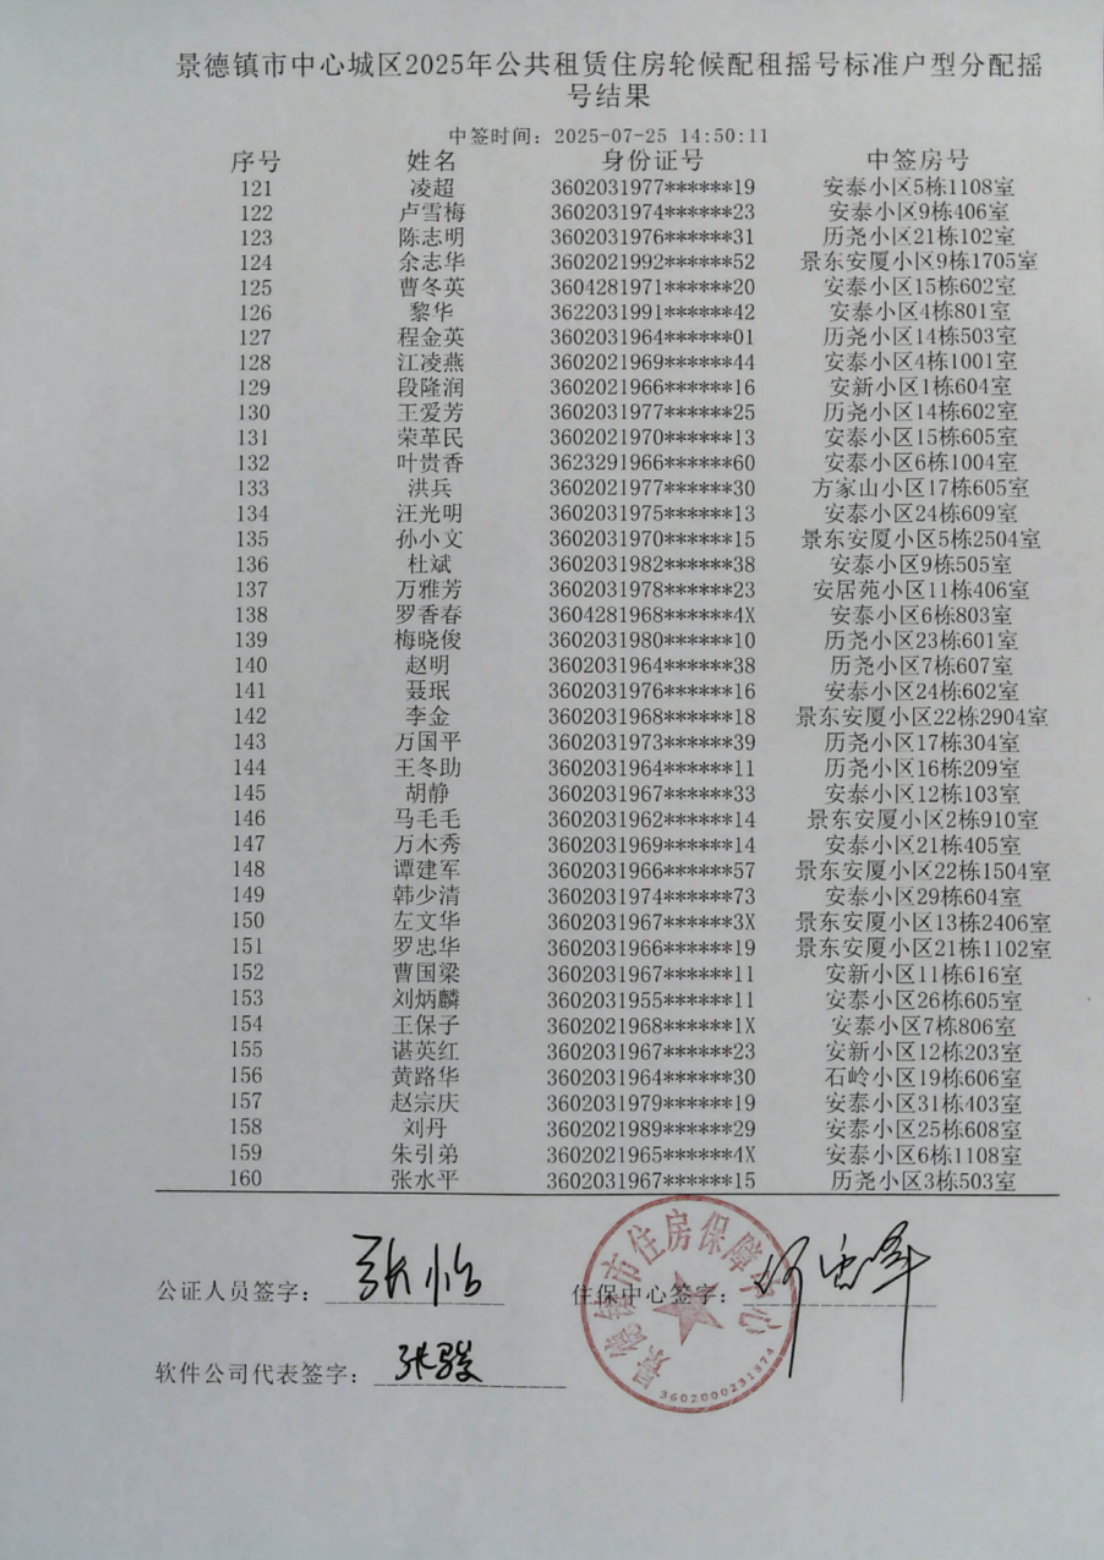 景德镇市中心城区2025年公共租赁住房轮候配租摇号标准户型分配摇
号结果
中签时间：2025-07-25 14:50:11
序号 姓名 身份证号 中签房号
121 凌超 3602031977******19 安泰小区5栋1108室
122 卢雪梅 3602031974******23 安泰小区9栋406室
123 陈志明 3602031976******31 历尧小区21栋102室
124 余志华 3602021992******52 景东安厦小区9栋1705室
125 曹冬英 3604281971******20 安泰小区15栋602室
126 黎华 3622031991******42 安泰小区4栋801室
127 程金英 3602031964******01 历尧小区14栋503室
128 江凌燕 3602021969******44 安泰小区4栋1001室
129 段隆润 3602021966******16 安新小区1栋604室
130 王爱芳 3602031977******25 历尧小区14栋602室
131 荣革民 3602021970******13 安泰小区15栋605室
132 叶贵香 3623291966******60 安泰小区6栋1004室
133 洪兵 3602021977******30 方家山小区17栋605室
134 汪光明 3602031975******13 安泰小区24栋609室
135 孙小文 3602031970******15 景东安厦小区5栋2504室
136 杜斌 3602031982******38 安泰小区9栋505室
137 万雅芳 3602031978******23 安居苑小区11栋406室
138 罗香春 3604281968******4X 安泰小区6栋803室
139 梅晓俊 3602031980******10 历尧小区23栋601室
140 赵明 3602031964******38 历尧小区7栋607室
141 聂珉 3602031976******16 安泰小区24栋602室
142 李金 3602031968******18 景东安厦小区22栋2904室
143 万国平 3602031973******39 历尧小区17栋304室
144 王冬助 3602031964******11 历尧小区16栋209室
145 胡静 3602031967******33 安泰小区12栋103室
146 马毛毛 3602031962******14 景东安厦小区2栋910室
147 万木秀 3602031969******14 安泰小区21栋405室
148 谭建军 3602031966******57 景东安厦小区22栋1504室
149 韩少清 3602031974******73 安泰小区29栋604室
150 左文华 3602031967******3X 景东安厦小区13栋2406室
151 罗忠华 3602031966******19 景东安厦小区21栋1102室
152 曹国梁 3602031967******11 安新小区11栋616室
153 刘炳麟 3602031955******11 安泰小区26栋605室
154 王保子 3602021968******1X 安泰小区7栋806室
155 谌英红 3602031967******23 安新小区12栋203室
156 黄路华 3602031964******30 石岭小区19栋606室
157 赵宗庆 3602031979******19 安泰小区31栋403室
158 刘丹 3602021989******29 安泰小区25栋608室
159 朱引弟 3602021965******4X 安泰小区6栋1108室
160 张水平 3602031967******15 历尧小区3栋503室
公证人员签字： 张怡 住保中心签字：
软件公司代表签字： 张骏
景德镇市住房保障中心
3602000231374